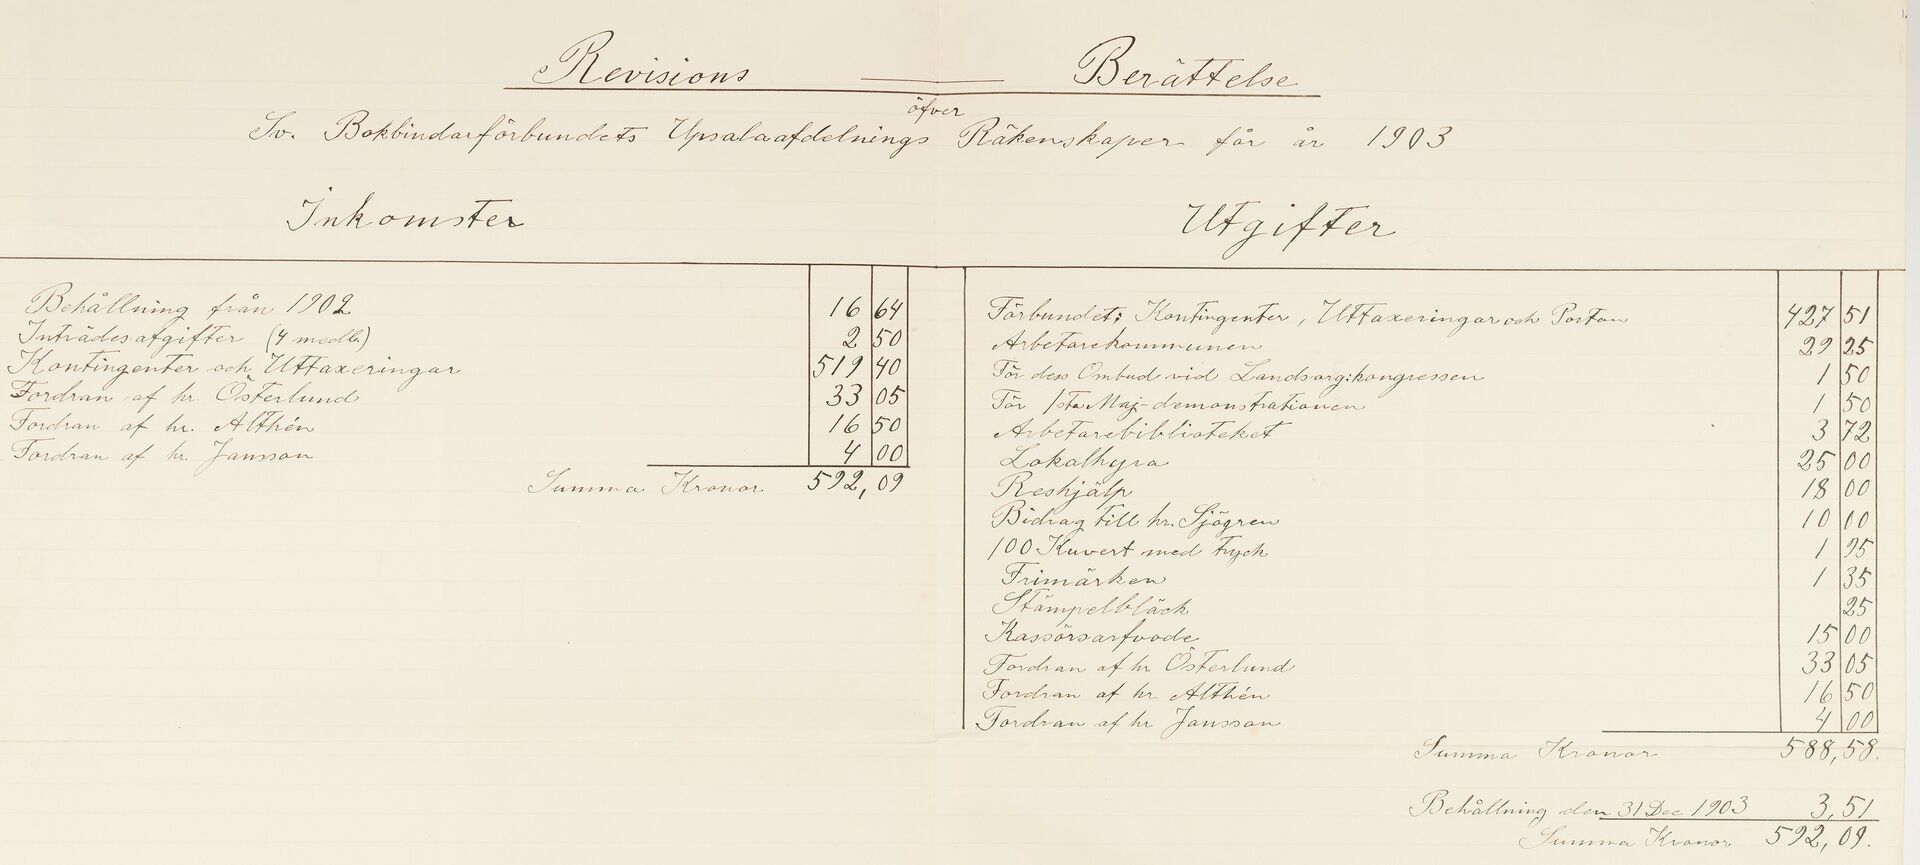 Revisions Berättelse
öfver
Sv. Bokbindarförbundets Upsalaafdelnings Räkenskaper för år 1903
Inkomster
Behållning från 1902 16 64
Inträdesafgifter (4 medl.) 2 50
Kontingenter och Uttaxeringar 519 40
Fordran af hr. Österlund 33 05
Fordran af hr. Althén 16 50
Fordran af hr. Jansson 4 00
Summa Kronor 592,09
Utgifter
Förbundet: Kontingenter, Uttaxeringar och Porton 427 51
Arbetarekommunen 29 25
För dess Ombud vid Landsorg:kongressen 1 50
För 1sta Maj-demonstrationen 1 50
Arbetarebiblioteket 3 72
Lokalhyra 25 00
Reshjälp 18 00
Bidrag till hr. Sjögren 10 00
100 Kuvert med tryck 1 95
Frimärken 1 35
Stämpelbläck 25
Kassörsarfvode 15 00
Fordran af hr Österlund 33 05
Fordran af hr. Althén 16 50
Fordran af hr Jansson 4 00
Summa Kronor 588,58.
Behållning den 31 Dec 1903 3,51
Summa Kronor 592,09.